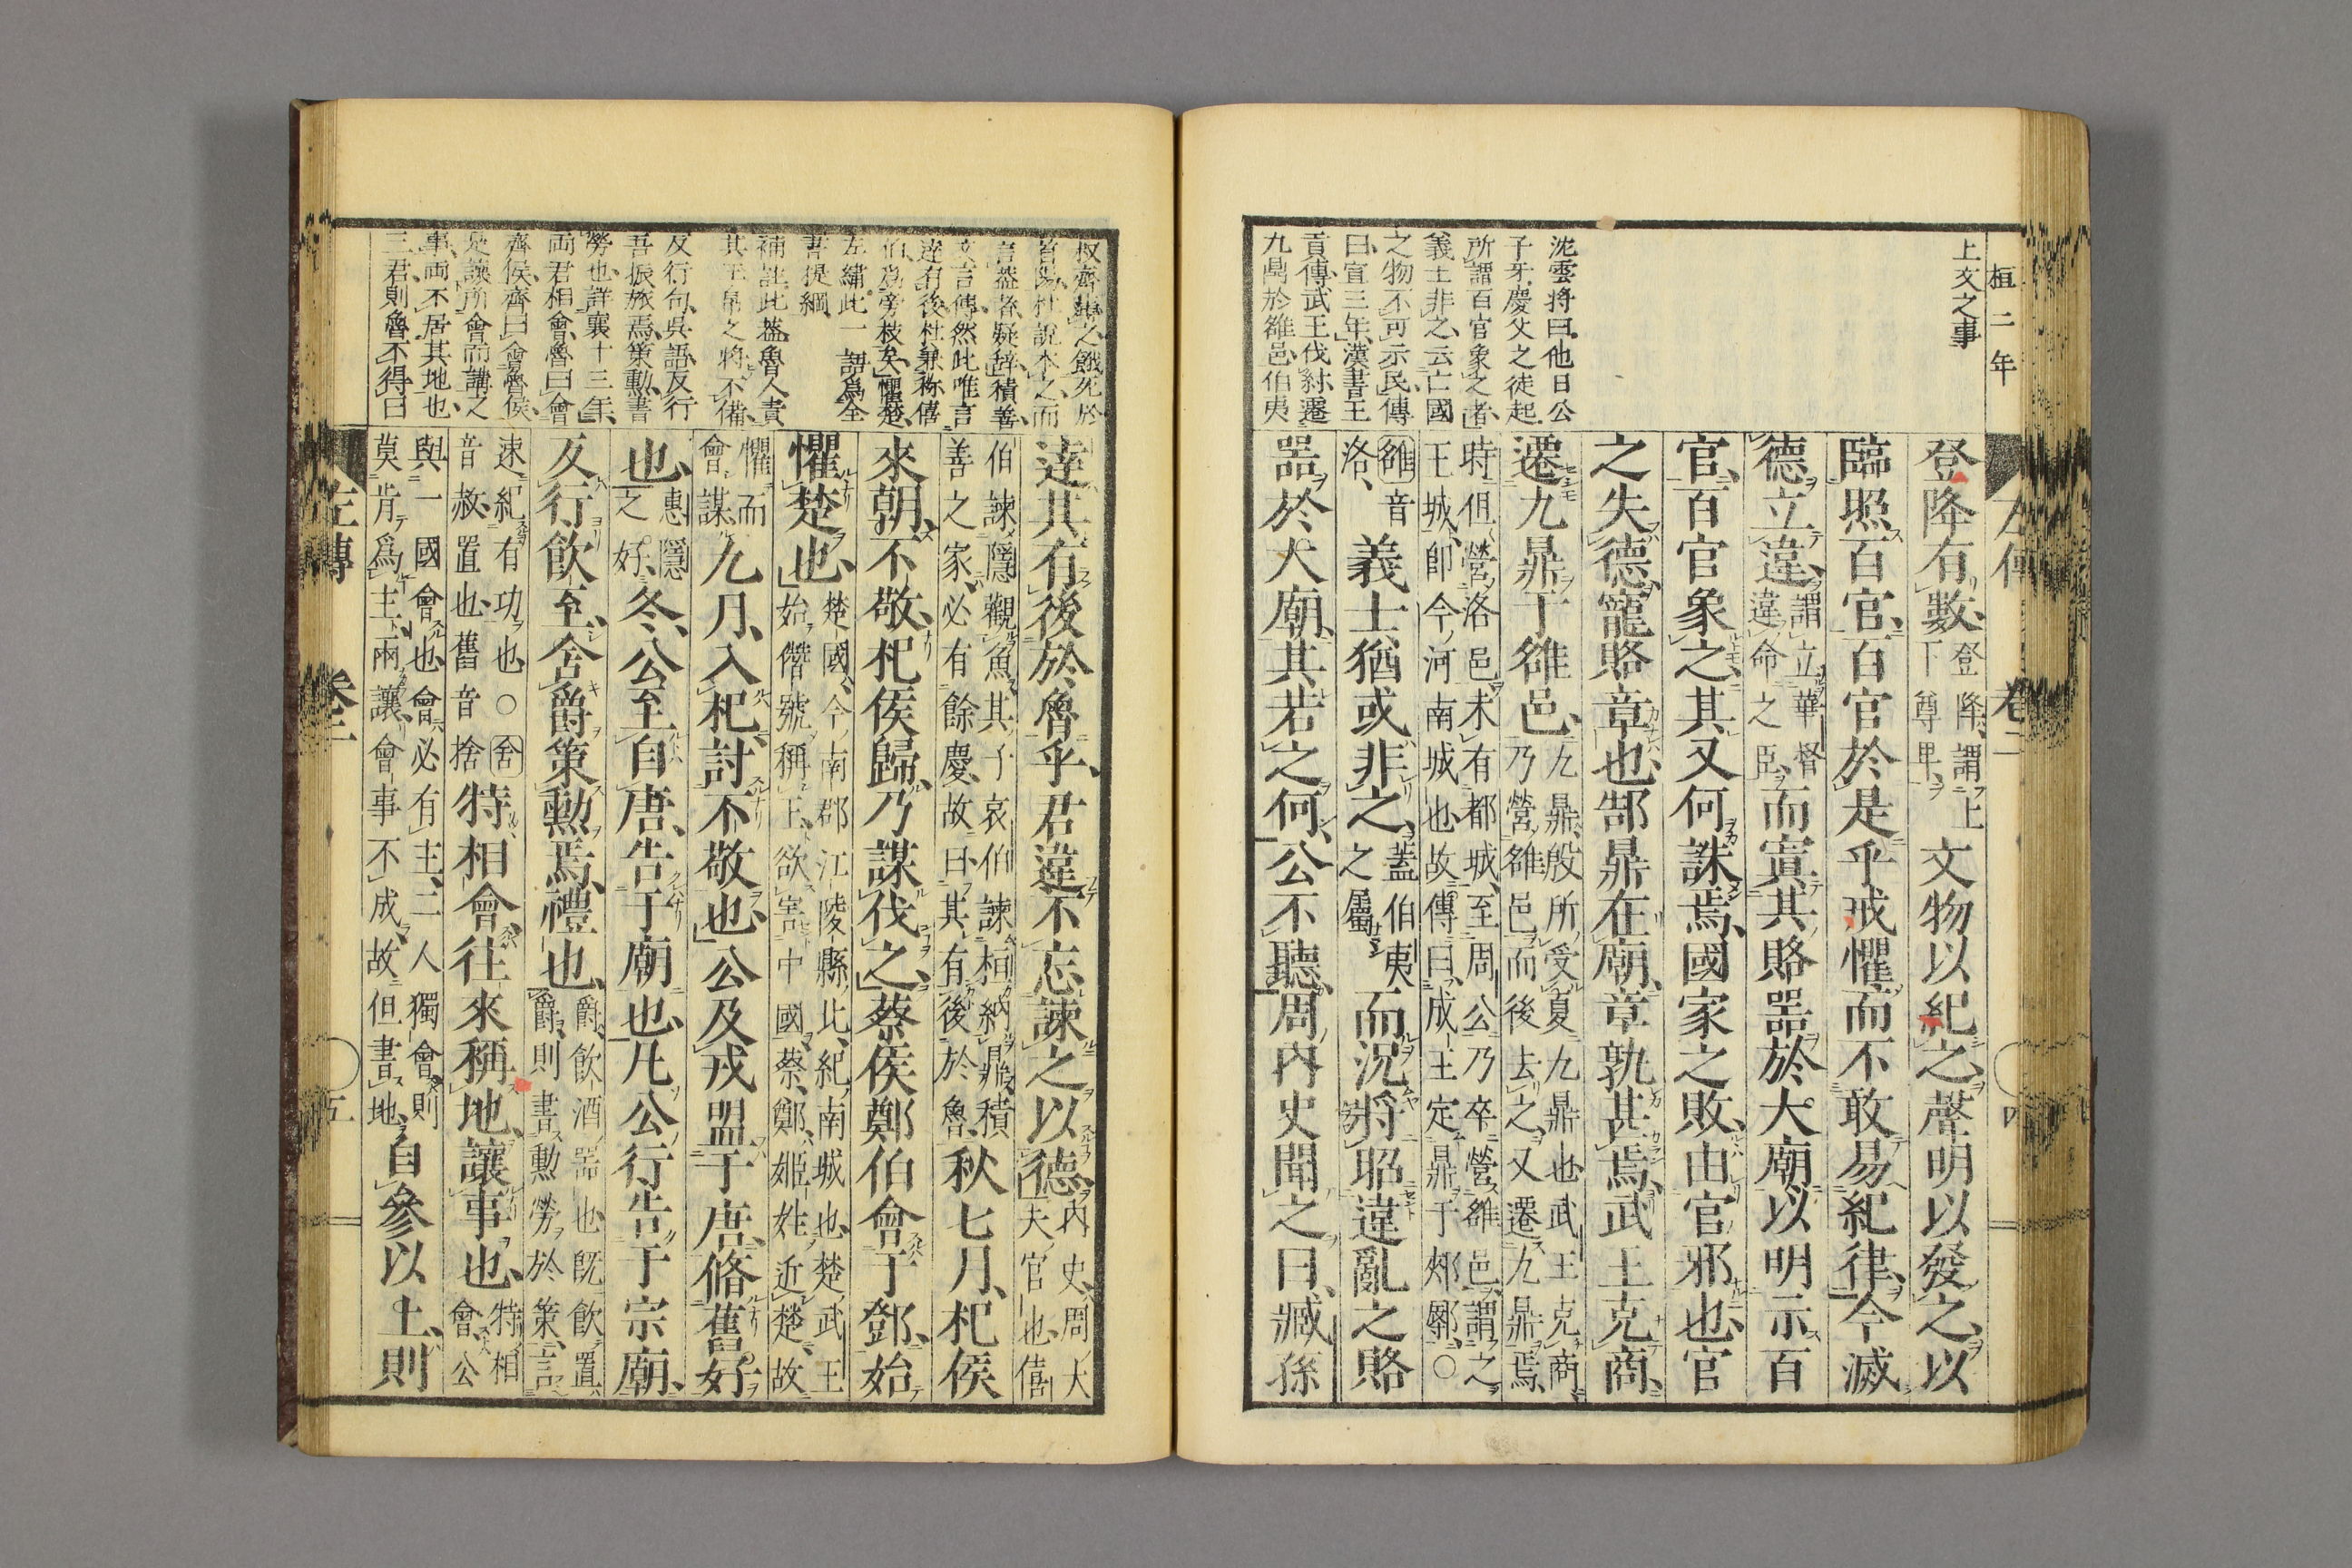 桓二年
上文之事
沈雲將曰他日公
子牙慶父之徒起
所謂百官象之者
義士非之云亡國
之物不可示民傳
曰宣三年漢書王
貢傳武王伐紂遷
九鼎於雒邑伯夷
登降有數登降謂上下尊卑文物以紀之聲明以發之以
臨照百官百官於是乎戒懼而不敢易紀律今滅
德立違謂立華督違命之臣而寘其賂器於大廟以明示百
官百官象之其又何誅焉國家之敗由官邪也官
之失德寵賂章也郜鼎在廟章孰甚焉武王克商
遷九鼎于雒邑九鼎殷所受夏九鼎也武王克商乃營雒邑而後去之又遷九鼎焉
時但營洛邑未有都城至周公乃卒營雒邑謂之
王城卽今河南城也故傳曰成王定鼎于郟鄏○
雒音洛義士猶或非之蓋伯夷之屬而況將昭違亂之賂
器於大廟其若之何公不聽周內史聞之曰臧孫
左傳 卷二 四
叔齊薄之餓死於
首陽杜說本之而
言蓋者疑辭積善
文言傳然此唯言
達有後杜兼称僖
伯爲旁枝矣懼楚
左繡此一語爲全
書提綱
補註此蓋魯人責
其玉帛之將不備
反行句吳語反行
吾振旅焉策勲書
勞也詳襄十三年
両君相會魯曰會
齊侯齊曰會魯侯
是讓所會而講之
事両不居其地也
三君則魯不得曰
達其有後於魯乎君違不忘諫之以德內史周大夫官也僖
伯諫隱觀魚其子哀伯諫桓納鼎積
善之家必有餘慶故曰其有後於魯秋七月杞侯
來朝不敬杞侯歸乃謀伐之蔡侯鄭伯會于鄧始
懼楚也楚國今南郡江陵縣北紀南城也楚武王始僭號稱王欲害中國蔡鄭姬姓近楚故
懼而會謀九月入杞討不敬也公及戎盟于唐脩舊好
也惠隱之好冬公至自唐告于廟也凡公行告于宗廟
反行飲至舍爵策勲焉禮也爵飲酒器也既飲置爵則書勲勞於策言
速紀有功也○舍音赦置也舊音捨特相會往來稱地讓事也特相會公
與一國會也會必有主二人獨會則
莫肯爲主兩讓會事不成故但書地自參以上則
左傳 卷二 五